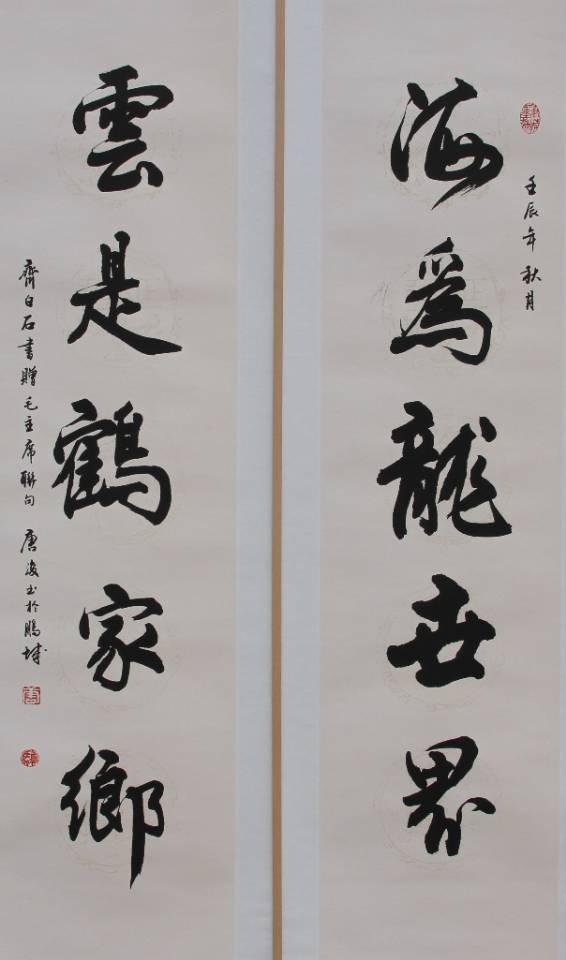 壬辰年秋月
海為龍世界
雲是鶴家鄉
齊白石書贈毛主席聯句 唐浚书於鵬城